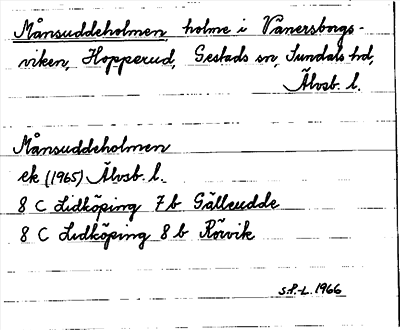 Månsuddeholmen, holme i Vänersborgs-
viken, Hopperud, Gestads sn, Sundals hd,
Älvsb. l.
Månsuddeholmen
ek (1965) Älvsb. l.
8 C Lidköping 7 b Gälleudde
8 C Lidköping 8 b Rörvik
S.P-L. 1966